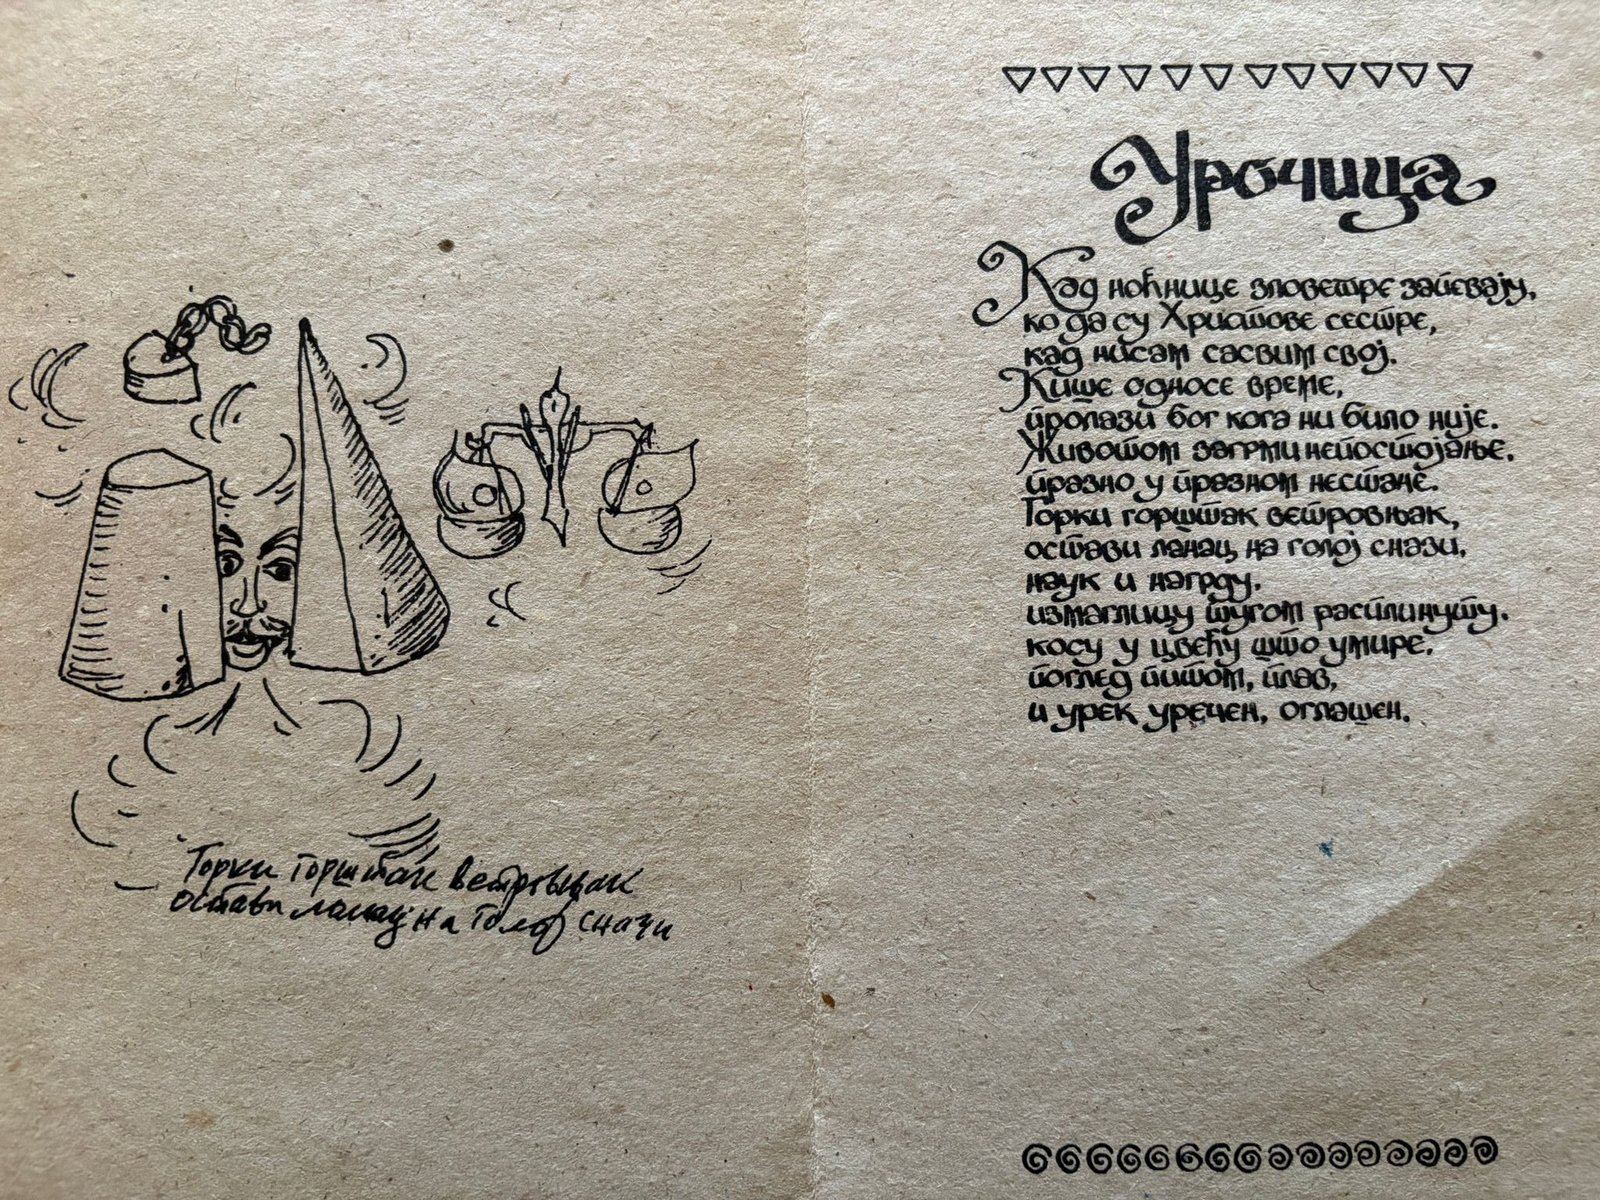 Горки горштак ветровњак
остави ланац на голој снази
Урочица
Кад ноћнице зловетре запевају,
ко да су Христове сестре,
кад нисам сасвим свој.
Кише односе време,
пролази бог кога ни било није.
Животом загрми непостојање.
празно у празном нестане.
Горки горштак ветровњак,
остави ланац на голој снази,
наук и нагрду,
измаглицу тугом расплинуту.
косу у цвећу што умире.
поглед питом, плав,
и урек уречен, оглашен.